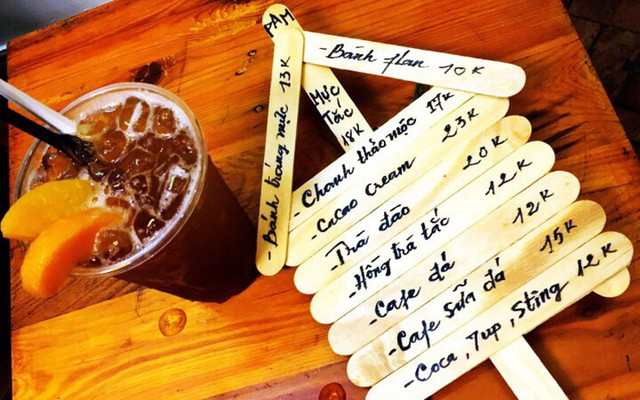 PAM
- Bánh flan 10K
- Bánh tráng mức 13K
Mực Tắc 18K
- Chanh thảo mộc 17K
- Cacao Cream 23K
- Trà đào 20K
- Hồng trà tắc 12K
- Cafe đá 12K
- Cafe sữa đá 15K
- Coca, 7up, Sting 12K